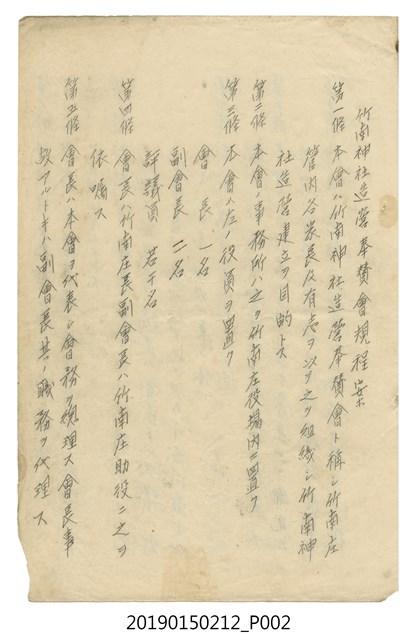 竹南神社造營奉賛會規程案
第一條 本會ハ竹南神社造營奉賛會ト稱シ竹南庄
管內各家長及有志ヲ以テ之ヲ組織シ竹南神
社造營建立ヲ目的トス
第二條 本會事務所ハ之ヲ竹南庄役場內ニ置ク
第三條 本會ハ左ノ役員ヲ置ク
會長 一名
副會長 二名
評議員 若干名
第四條 會長ハ竹南庄長副會長ハ竹南庄助役ニ之ヲ
依囑ス
第五條 會長ハ本會ヲ代表シ會務ヲ總理ス會長事
故アルトキハ副會長其ノ職務ヲ代理ス
20190150212_P002